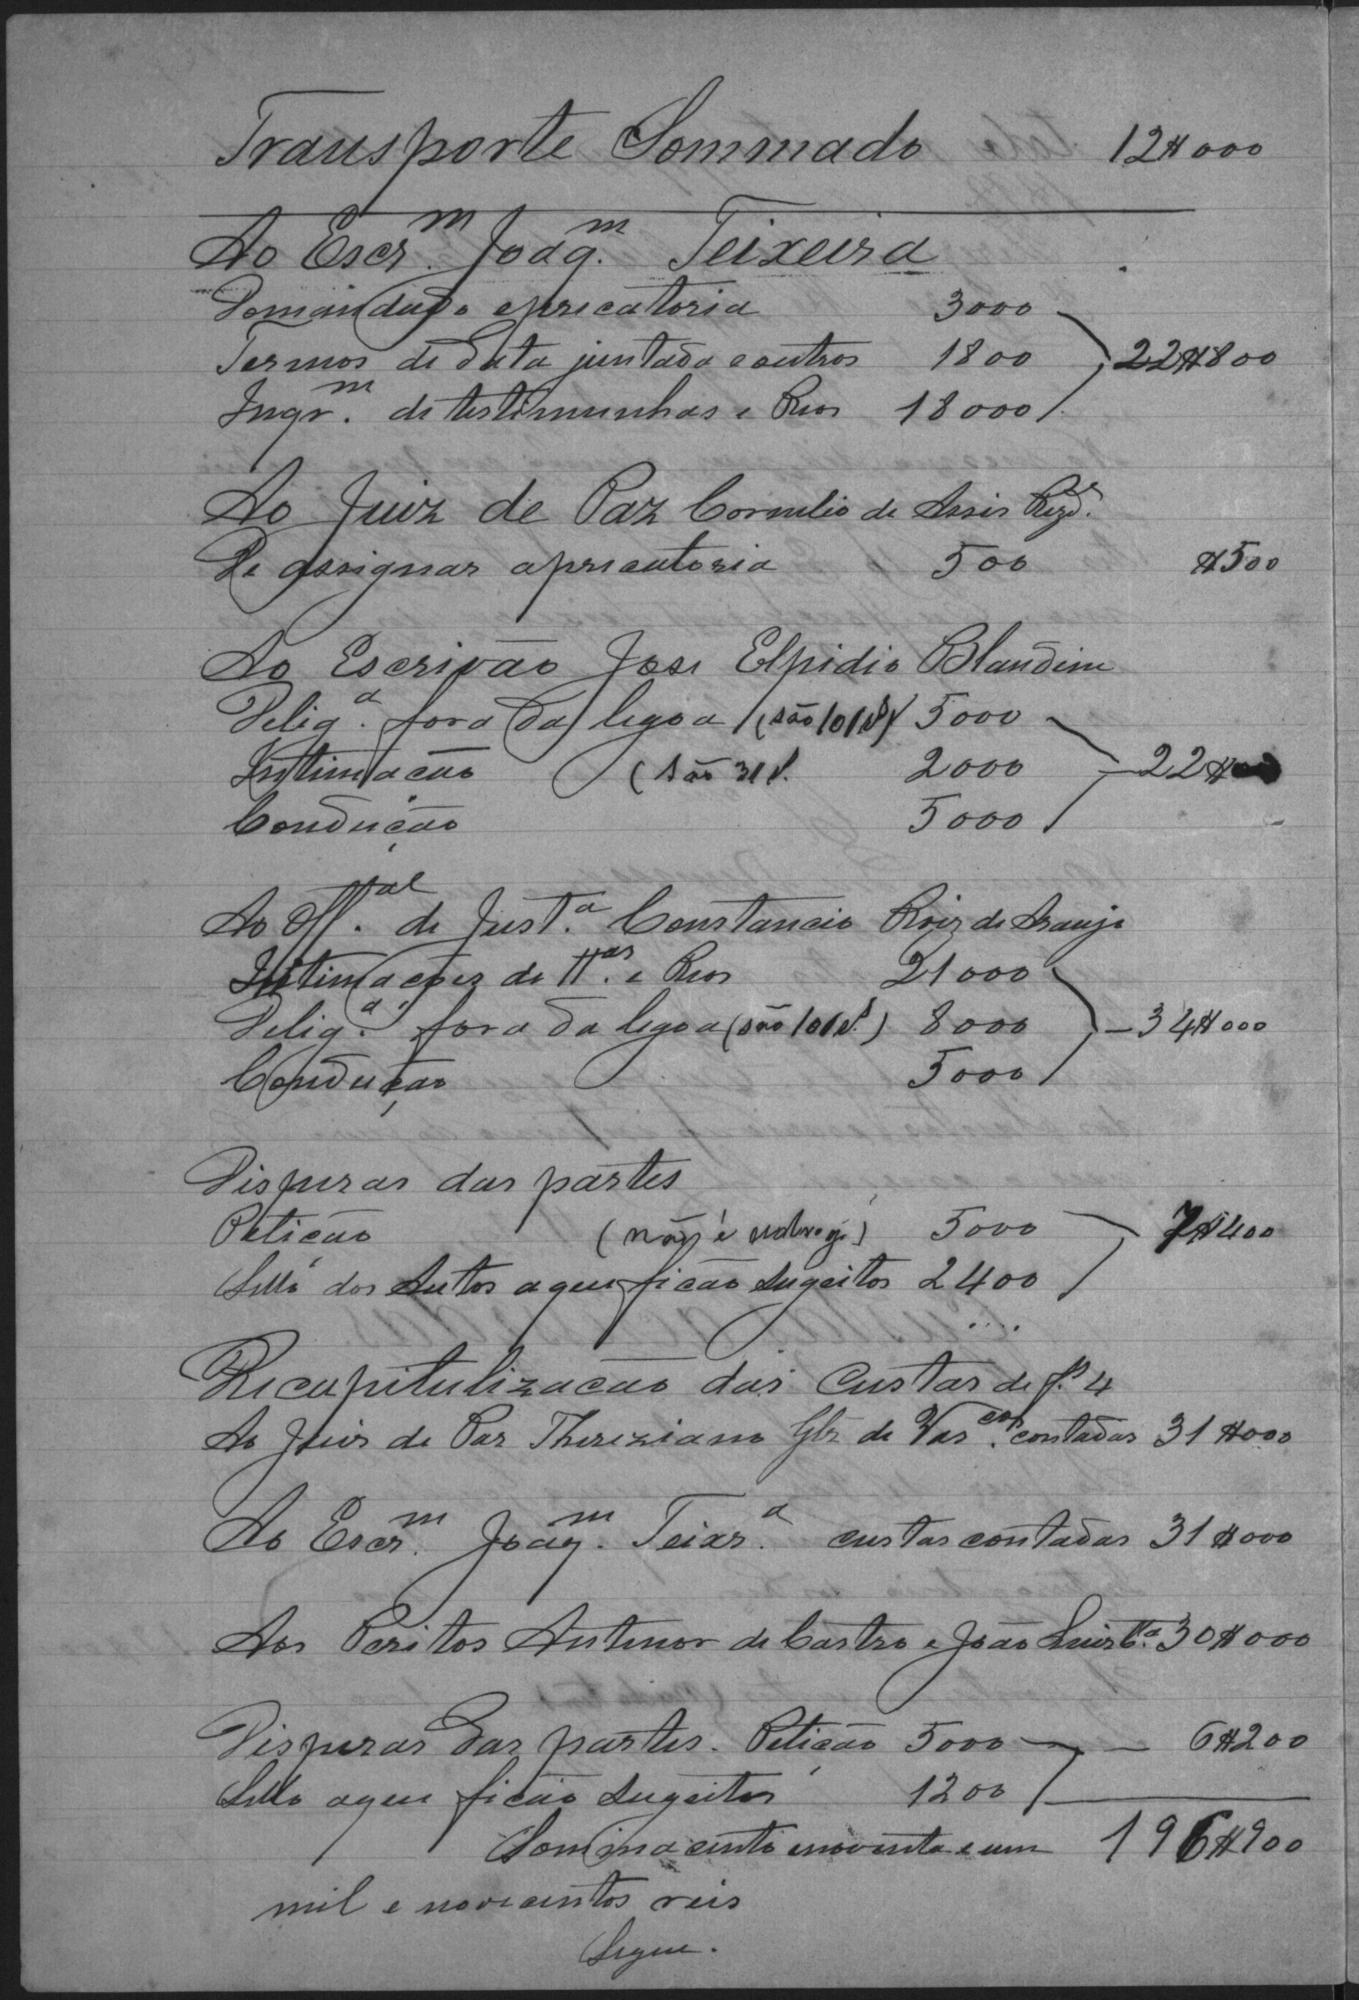 Transporte Sommado 12$000
Ao Escr.m Joaq.m Teixeira
Do mandado e precatoria 3000
Termos de data juntada e outros 1800 22$800
Inqr.m de testimunhas e Reos 18000
Ao Juiz de Paz Cornelio de Assis Rezd.e
De assignar a precatoria 500 $500
Ao Escrivão José Elpidio Blandim
Delig.a fora da legoa (são 10) 5000
Intimação (são 3) 2000 22$
Condução 5000
Ao Off.al de Just.a Constancio Roiz de Araujo
Intimações de tt.as e Reos 21000
Delig.a fora da legoa (são 10) 8000 34$000
Condução 5000
Dispezas das partes
Petição (não é) 5000 7$400
Sello dos Autos a que ficão sugeitos 2400
Recapitulizacão das Custas de f.s 4
Ao Juis de Paz Thereziano Glz de Vas.cos contadas 31$000
Ao Escr.m Joaq.m Teixr.a custas contadas 31$000
Aos Peritos Antenor de Castro e João Luiz 30$000
Dispezas das partes. Petição 5000 6$200
Sello a que ficão sugeitos 1200
Somma cento e noventa e um 196$900
mil e novecentos reis
Segue.